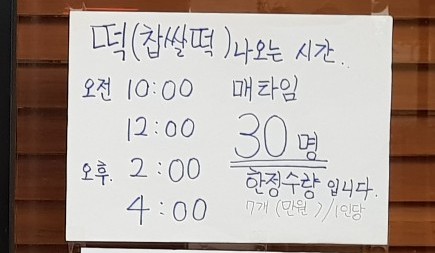 떡(찹쌀떡) 나오는 시간..
오전 10:00
12:00
오후. 2:00
4:00
매타임
30명
한정수량 입니다.
7개 (만원)/1인당